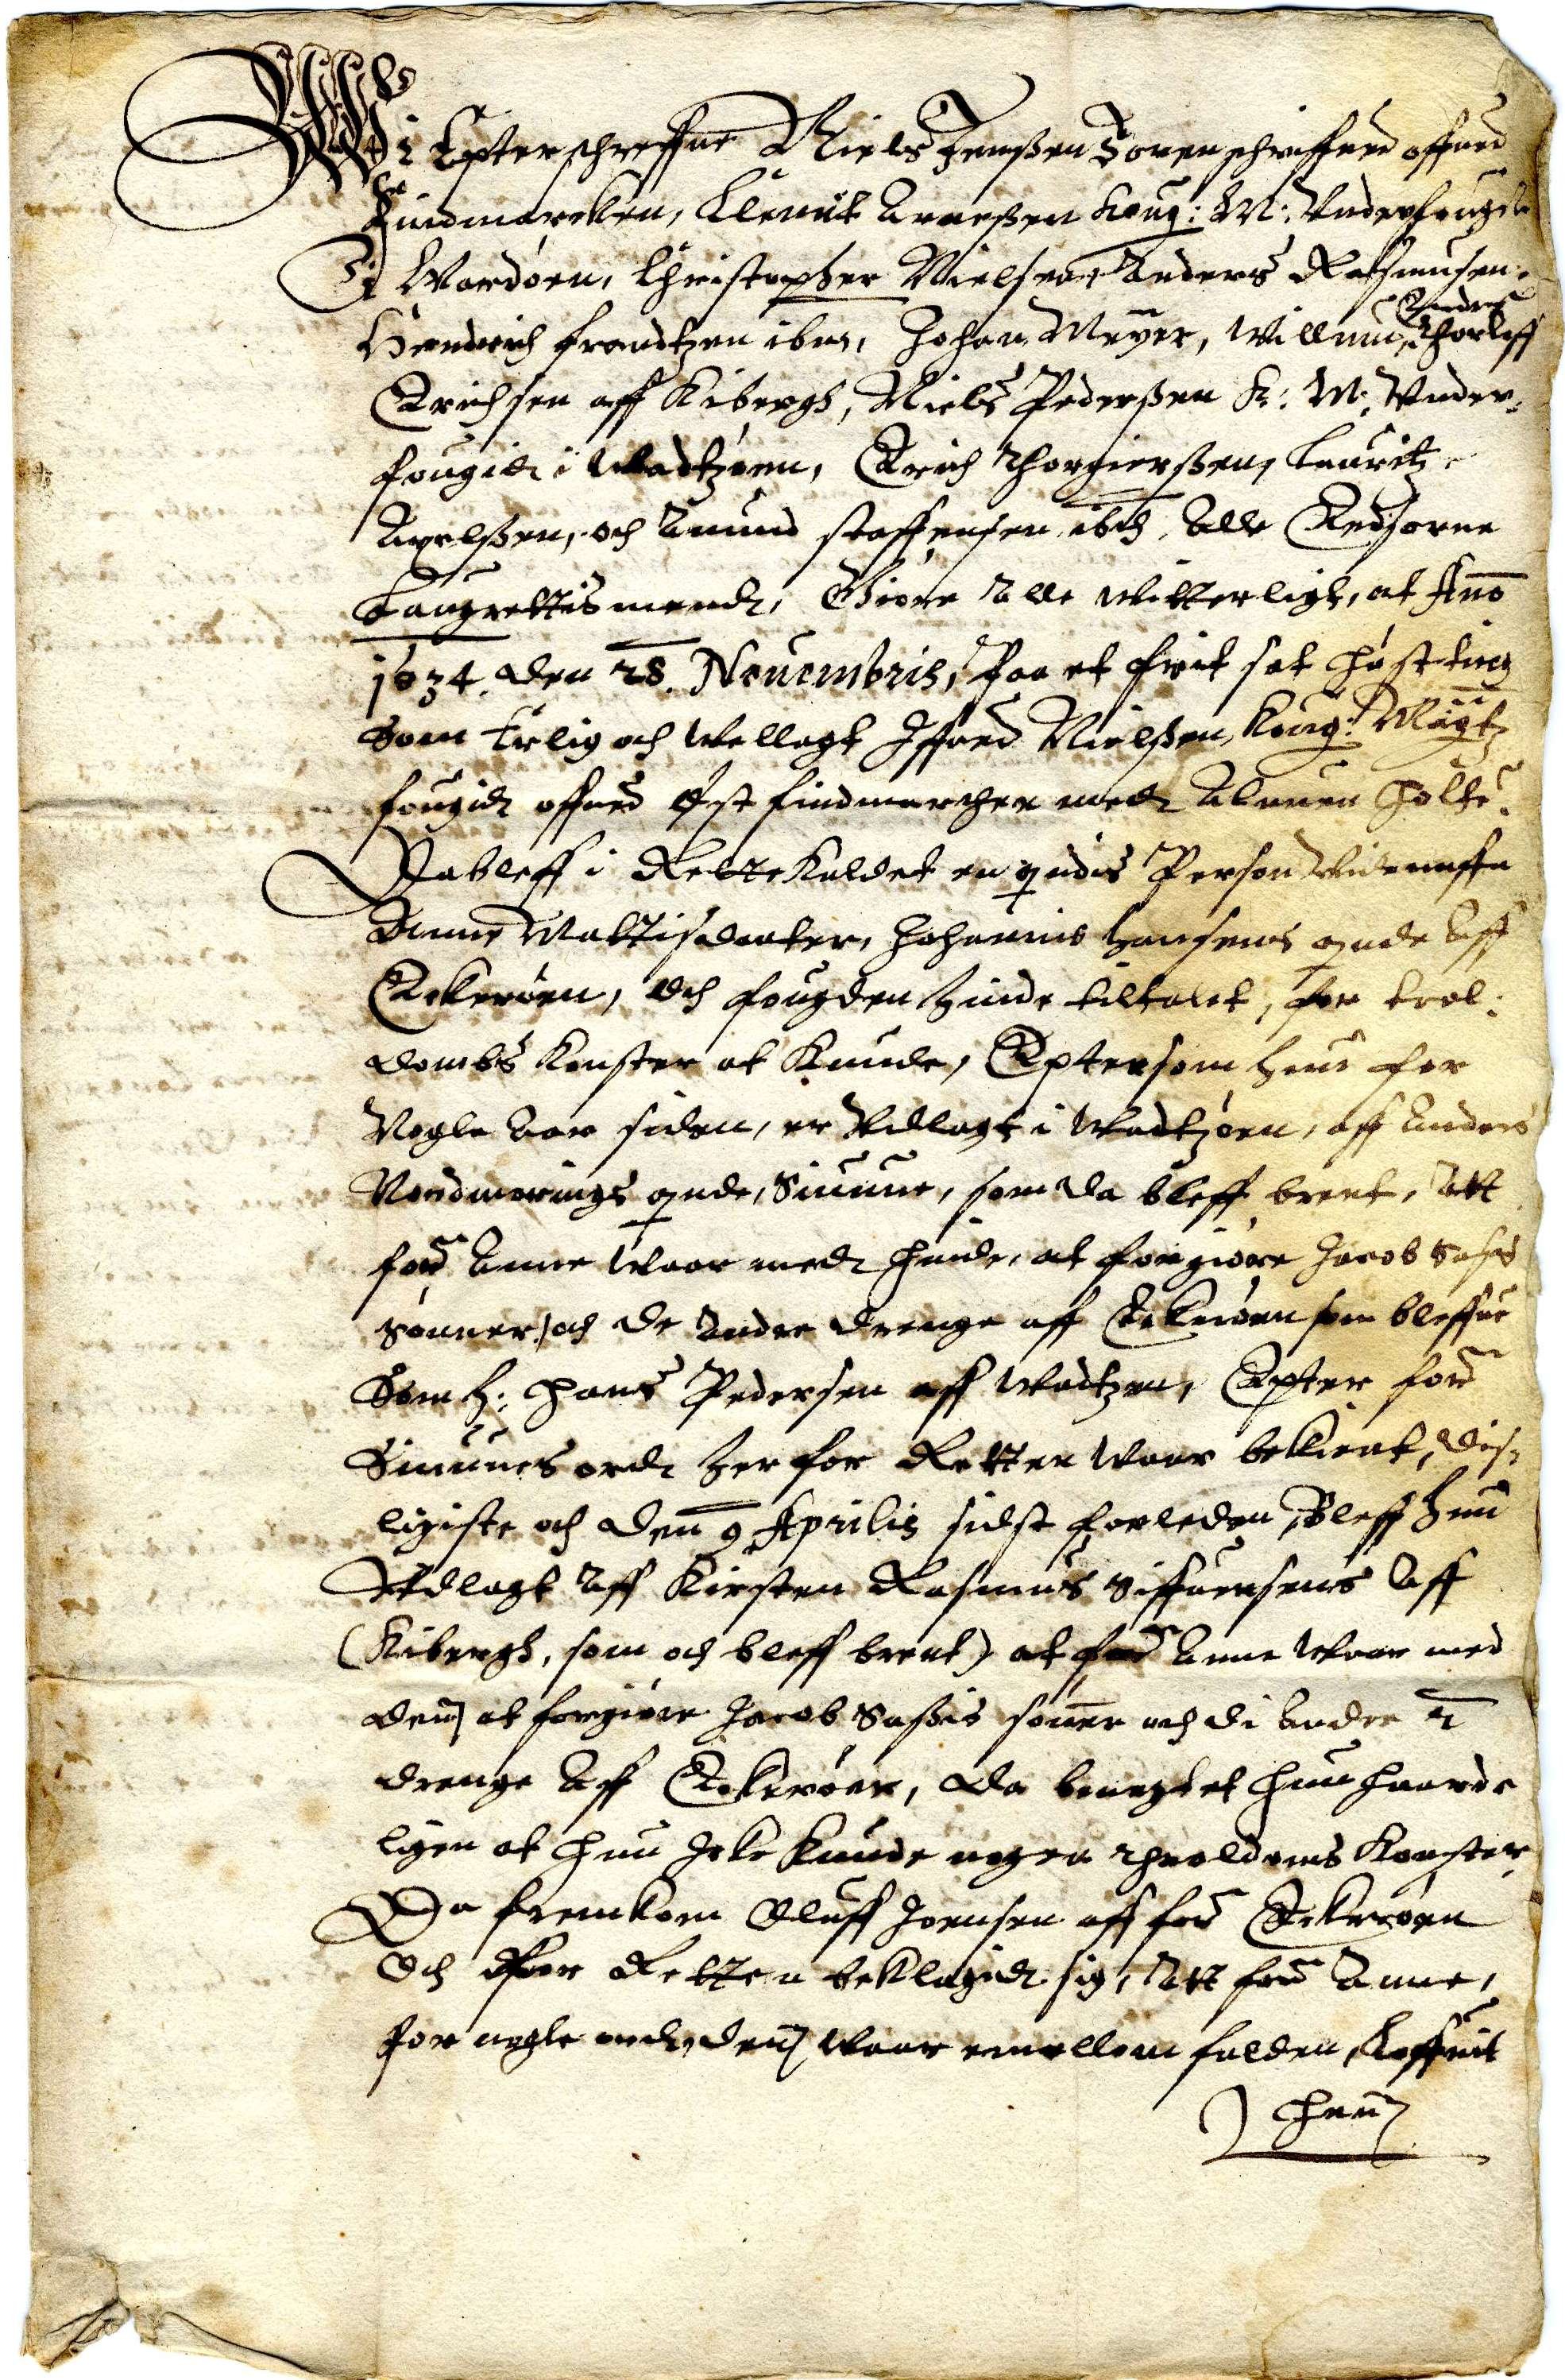 Wi Epterschreffne Niels Jenßen Sorenschriffuer offuer
Findmarcken, Clemit Arnesßen Kong: M: Underfougit
I Wardøen, Christopher Nielsen Anders Rasmusen
Hendrich Frandtzen ibm, Johan Meyer, Willum Anders: Thorleff
Erichsen aff Kibergh, Niels Pederßen K: M: Under-
fougidt i Wadtzøen, Erich Thorgierßen, Lauritz
Axelßen, och Amund Staffensen ibid, Alle Eedsorne
Laugrettismend, Giøre Alle witterligt, at Anno
1634. den 28. Nouembris, paa et frit sat høstting
Som Erlig och Wellagt Iffuer Nielßen, Kong: Maytz
fougidt offuer Øst findmarchen med Almuen holte.
Da bleff i Rette Kaldet en quindis Person wid naffn
Anne Mattisdaater, Johannis Hansens quinde Aff
Eckerøen, Och fougden hinde tiltalet, for trol-
dombs Konster at Kunde, Eptersom hun for
Nogle Aar siden, er Udlagt i Wadtzøen, aff Anders
Nordmørings quinde, Sinnue, som da bleff brent, Att
ford Anne waar med hinde, at forgiøre Jacob Saßis
Sønner, och de Andre drenge aff Eckerøen som bleffue
Som H: Hans Pedersen aff Wadtzøen, Epter ford
Sinnues ord her for Retten waar bekient, dis-
ligiste och den 9 Aprilis sidst forleden, Bleff hun
Udlagt Aff Kirsten Rasmus Siffuersens Aff
(Kibergh, som och bleff brent) at ford Anne Waar med
dem at forgiøre Jacob Saßis sønner och di Andre 2
drenge Aff Eckerøen, da benegtet hun haarde
ligen at hun Icke Kunde nogen Throldoms Konster,
Da fremkom Oluff Joensen aff ford Eckerøen
Och for Retten beklagidt sig, Att ford Anne,
for nogle ord, dem waar emellom falden, Loffuit
hannem